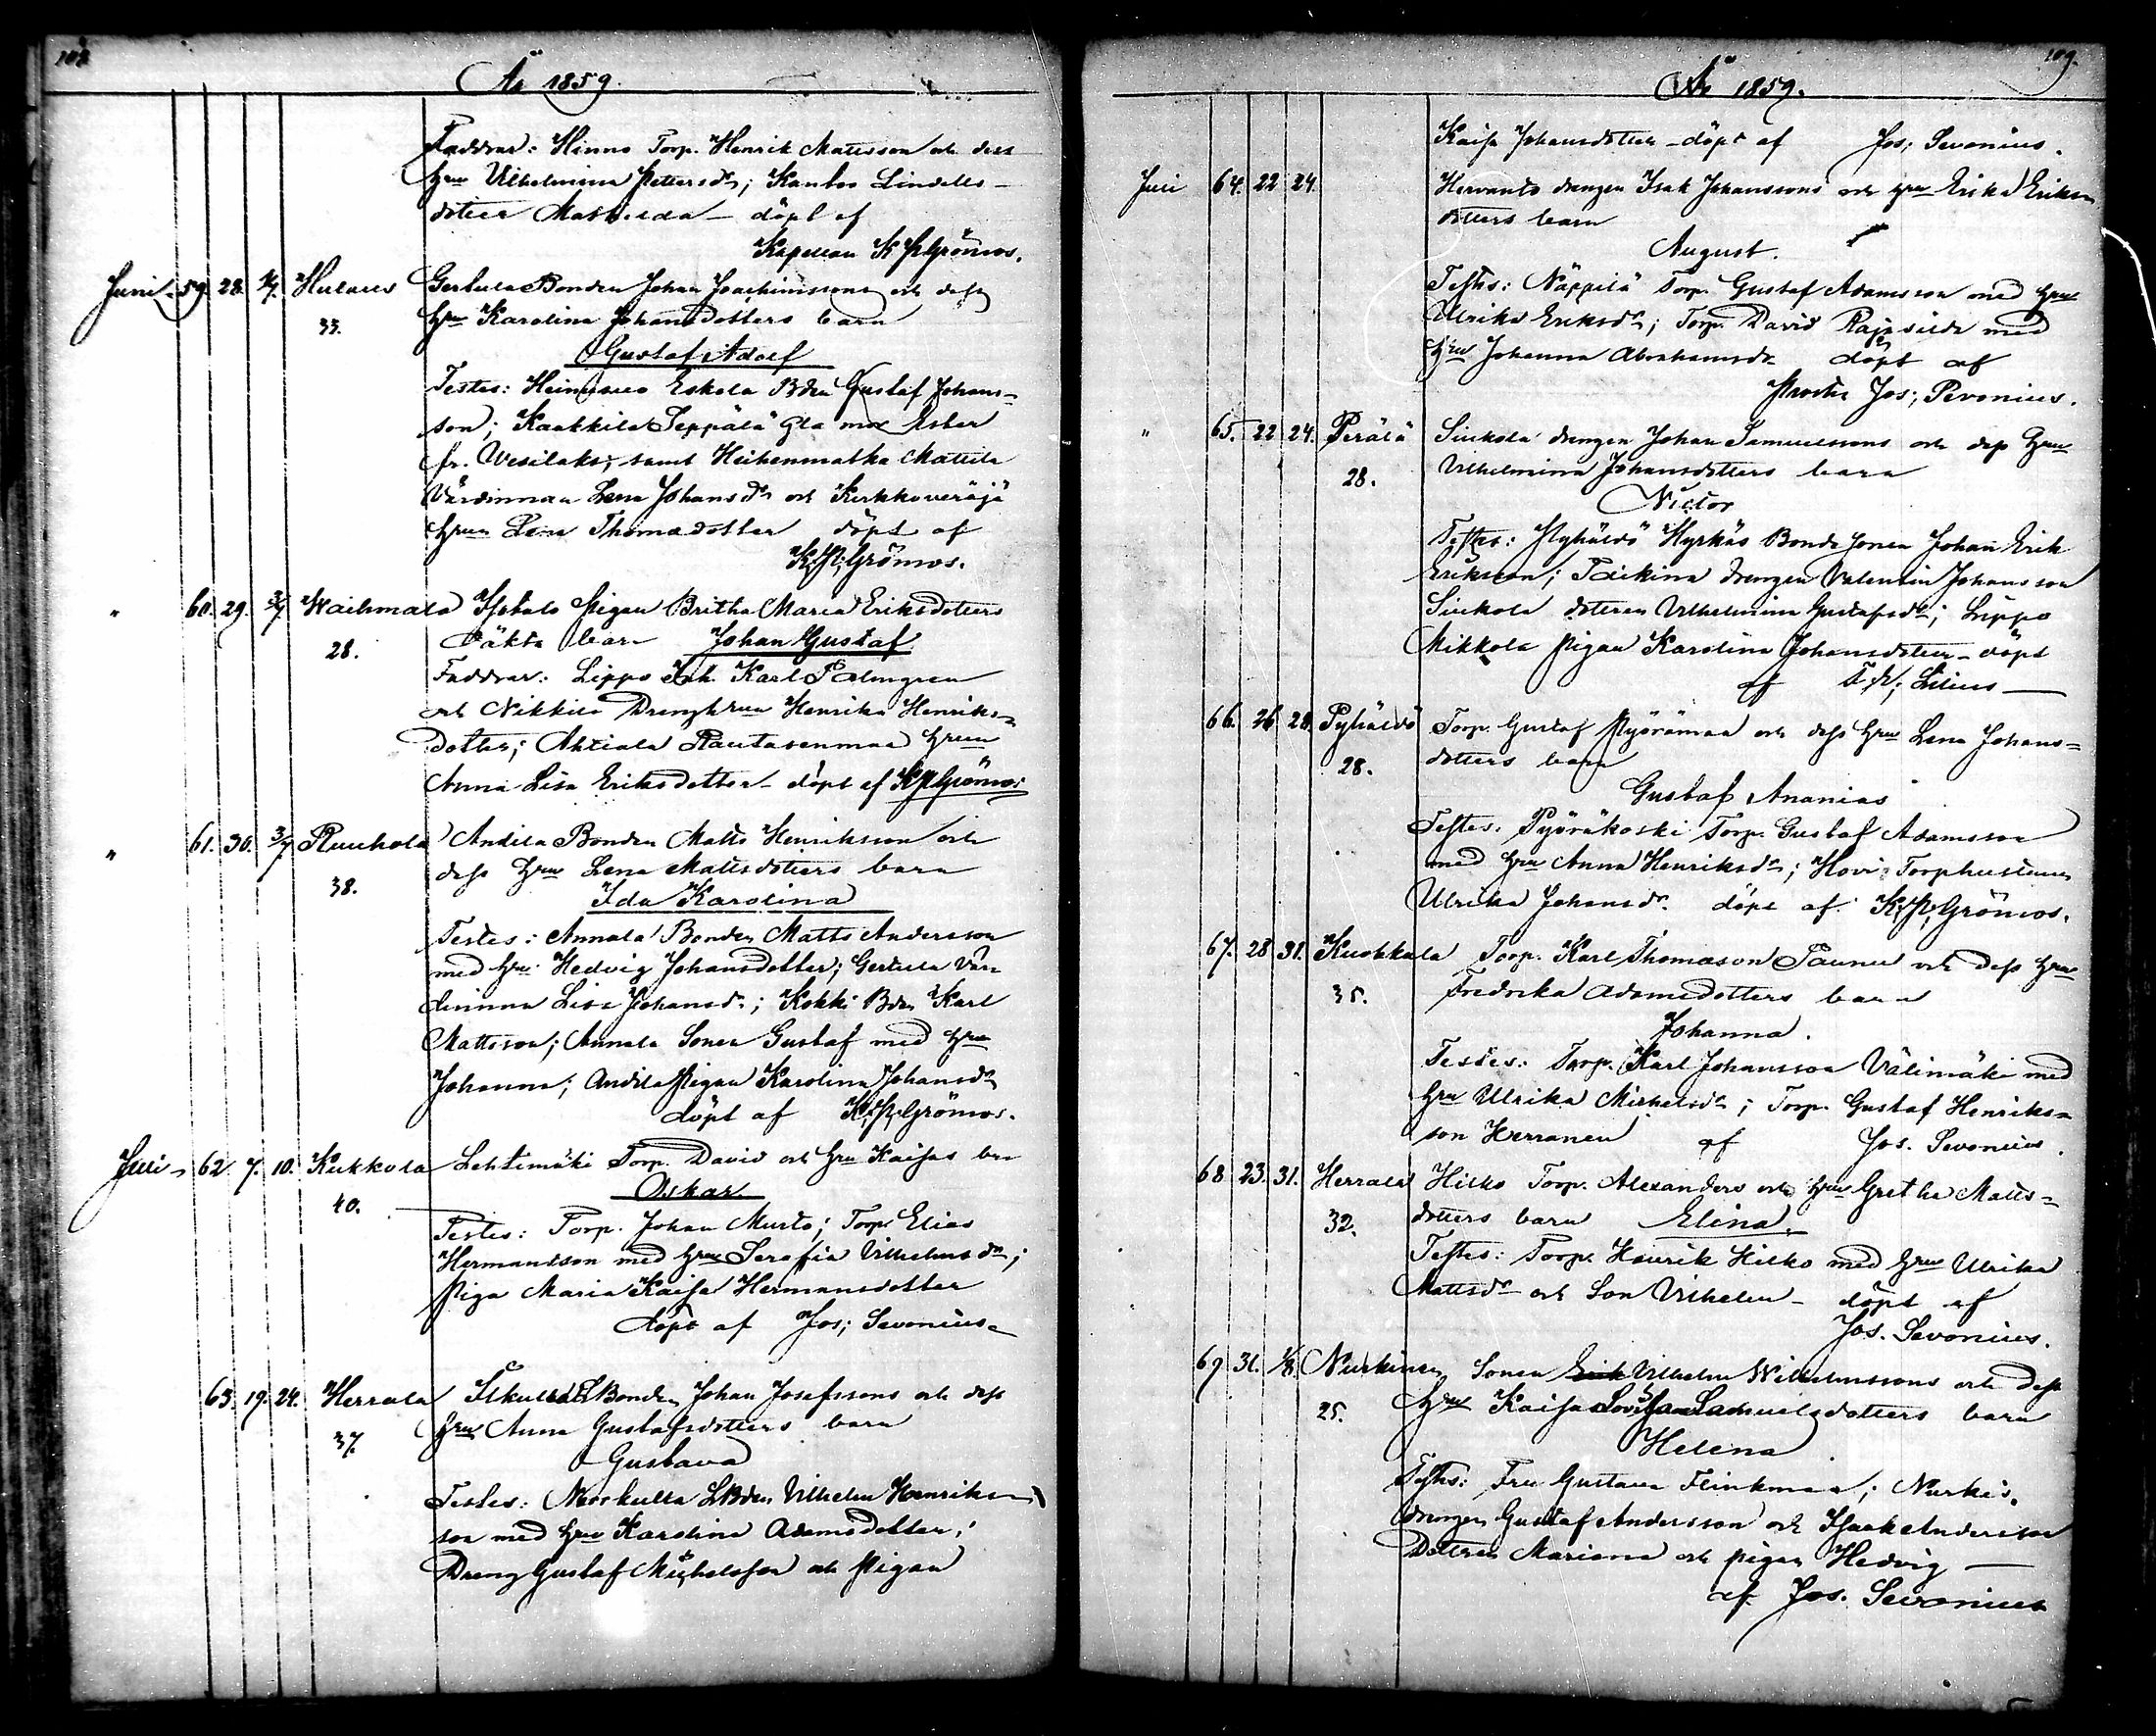 108.
År 1859.
Faddrar: Hinno Torp. Henrik Mattsson och dess
hru Vilhelmina Pettersdr; Kanbo Lindells
dotter Mathilda – döpt af
Kapellan K. P. Grönvos.
Juni 59. 28. 3/7. Hulaus Gerkula Bonden Johan Joachimssons och dess
33. hru Karolina Johansdotters barn
Gustaf Adolf
Testes: Heinusuo Eskola Bdn Gustaf Johans-
son; Kaakkila Seppälä Gla mor Ester
fr. Vesilaks; samt Heikenmatka Mattila
Värdinnan Lena Johansdr och Kirkkoveräjä
hrun Lena Thomædotter döpt af
K. P. Grönvos.
" 60. 29. 3/7 Waihmala Isotalo Pigan Britha Maria Eriksdotters
28. oäkta barn Johan Gustaf
Faddrar: Lippo Karl Palmgren
och Nikkilä Dreng hrun Henrika Henriks-
dotter; Ahtiala Rautasenmaa hrun
Anna Lisa Eriksdotter – döpt af K. P. Grönvos
" 61. 30. 3/7 Ruuhola Andila Bonden Matts Henriksson och
38. dess hru Lena Mattsdotters barn
Ida Karolina
Testes: Annala Bonden Matts Andersson
med hru Hedvig Johansdotter; Gerkula Vär-
dinnan Lisa Johansdr; Kokki Bdn Karl
Mattsson; Annala Sonen Gustaf med hru
Johanna; Andila Pigan Karolina Johansdr
döpt af K. P. Grönvos.
Juli 62. 7. 10. Kukkola Lehtimäki Torp. David och hru Kaisas barn
40. Oskar
Testes: Torp. Johan Murto; Torp. Elias
Hermansson med hru Serafia Vilhelmsdr;
Piga Maria Kaisa Hermansdotter
döpt af Jos; Sevonius
63. 19. 24. Herrala Bonden Johan Josefssons och dess
37. hru Anna Gustafsdotters barn
Gustava
Testes: Vilhelm Henriks-
son med hru Karolina Adamsdotter;
Dreng Gustaf Michelsson och Pigan
109.
År 1859.
Kaisa Johansdotter – döpt af Jos; Sevonius.
Juli 64. 22 24. Hervanto drengen Isak Johanssons och hru Erika Eriks-
dotters barn
August.
Testes: Näppilä Torp. Gustaf Adamsson med hru
Ulrika Eriksdr; Torp. David med
hru Johanna Abrahamsdr döpt af
Prosten Jos; Sevonius.
" 65. 22 24. Perälä Sinkola drengen Johan Samuelssons och dess hru
28. Vilhelmina Johansdotters barn
Victor
Testes: Pyhältö Hyrkäs Bonde sonen Johan Erik
Eriksson; Paikina drengen Valentin Johansson
Sinkola dottren Vilhelmina Gustafsdr; Lippo
Mikkola Pigan Karolina Johansdotter – döpt
af Lilius
66. 26 28. Pyhältö Torp. Gustaf Pyörämaa och dess hru Lena Johans-
28. dotters barn
Gustaf Ananias
Testes. Pyöräkoski Torp. Gustaf Adamsson
med hru Anna Henriksdr; Hovi Torp hustrun
Ulrika Johansdr. döpt af K. P. Grönvos.
67. 28 31. Kuokkala Torp. Karl Thomasson Paunu och dess hru
35. Fredrika Adamsdotters barn
Johanna.
Testes: Torp. Karl Johansson Välimäki med
hru Ulrika Michelsdr; Torp. Gustaf Henriks-
son Herranen af Jos. Sevonius.
68 23. 31. Herrala Hilko Torp. Alexanders och hru Gretha Matts-
32. dotters barn Elina.
Testes: Torp. Henrik Hilko med hru Ulrika
Mattsdr och Son Vilhelm – döpt af
Jos. Sevonius.
69 31. 1/8. Nurkinen Sonen Erik Vilhelm Wilhelmssons och dess
25. hru Kaisa Lovisa Samuelsdotters barn
Helena
Testes: Fru Gustava Flinkman; Nurkis
drengen Gustaf Andersson och Isaak Andersson
Dottren Mariana och pigan Hedvig
af Jos. Sevonius